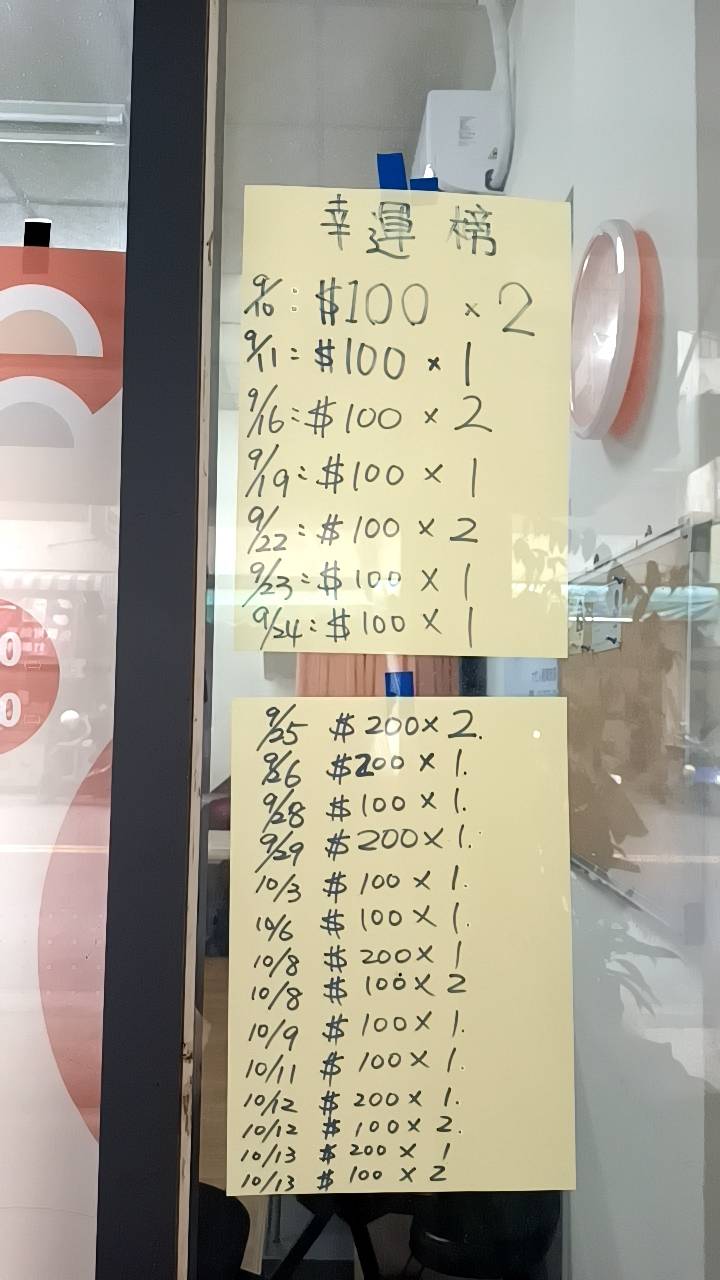 幸運榜
9/10: $100 × 2
9/11: $100 × 1
9/16: $100 × 2
9/19: $100 × 1
9/22: $100 × 2
9/23: $100 × 1
9/24: $100 × 1
9/25 $200 × 2.
9/26 $200 × 1.
9/28 $100 × 1.
9/29 $200 × 1.
10/3 $100 × 1.
10/6 $100 × 1.
10/8 $200 × 1
10/8 $100 × 2
10/9 $100 × 1.
10/11 $100 × 1.
10/12 $200 × 1.
10/12 $100 × 2.
10/13 $200 × 1
10/13 $100 × 2